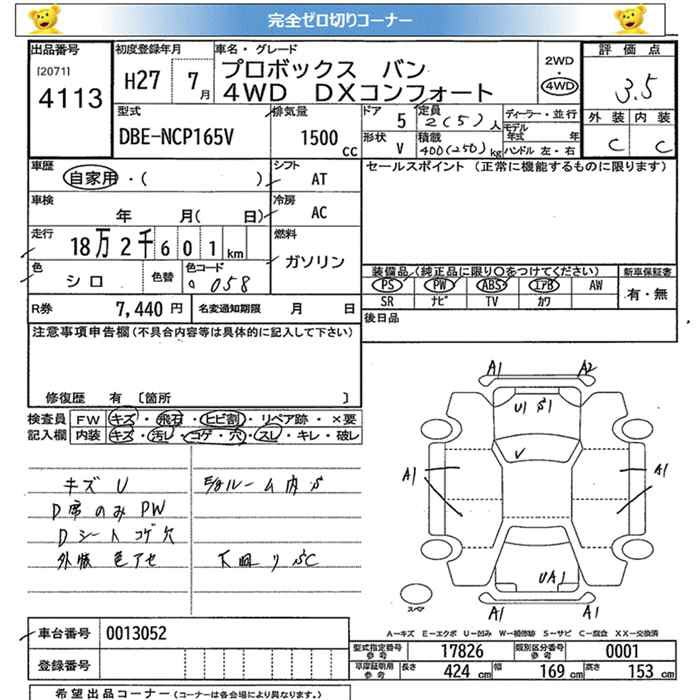 完全ゼロ切りコーナー
出品番号 初度登録年月 車名・グレード 評価点
[2071] 4113 H27 7月 プロボックス バン
4WD DXコンフォート
2WD 4WD
3.5
外装 内装
C C
型式 排気量 ドア 定員 ディーラー・並行
DBE-NCP165V 1500 cc 5 2(5)人 モデル年式 年
形状 積載 ハンドル 左・右
V 400(250)kg
車歴 シフト セールスポイント (正常に機能するものに限ります)
自家用・( ) AT
車検 冷房
年 月( 日) AC
走行 燃料
18万2千601km ガソリン
色 色替 色コード
シロ 058
装備品 (純正品に限り〇をつけてください) 新車保証書
PS PW ABS エアB AW 有・無
SR ナビ TV カワ
R券 7,440円 名変通知期限 月 日
後日品
注意事項申告欄 (不具合内容等は具体的に記入して下さい)
修復歴 有 〔箇所 〕
検査員記入欄 FW キズ・飛石・ヒビ割・リペア跡・×要
内装 キズ・汚レ・コゲ・穴・スレ・キレ・破レ
キズ U
D席のみ PW
Dシート コゲ穴
外板 色アセ
下回り SC
A1 A2
U1 S1
A1 A1
UA1
A1 A1
スペア
A-キズ E-エクボ U-凹み W-補修跡 S-サビ C-腐食 XX-交換済
車台番号 0013052
登録番号
型式指定番号 参考 17826 類別区分番号 参考 0001
車庫証明用 参考 長さ 424cm 幅 169cm 高さ 153cm
希望出品コーナー (コーナーは各会場により異なります。)